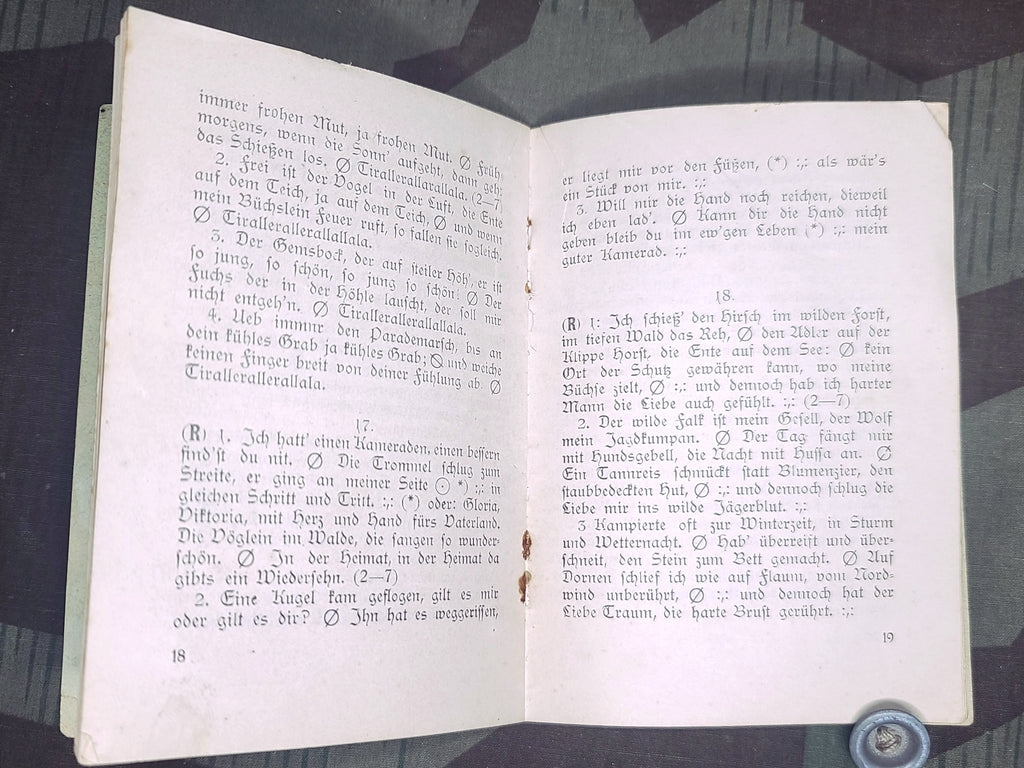 immer frohen Mut, ja frohen Mut. Ø Früh-
morgens, wenn die Sonn' aufgeht, dann geh-
das Schießen los. Ø Tirallerallarallala. (2—7)
2. Frei ist der Vogel in der Luft, die Ente
auf dem Teich, ja auf dem Teich, Ø und wenn
mein Büchslein Feuer ruft, so fallen sie sogleich.
Ø Tirallerallerallallala.
3. Der Gemsbock, der auf steiler Höh', er ist
so jung, so schön, so jung so schön! Ø Der
Fuchs der in der Höhle lauscht, der soll mir
nicht entgeh'n. Ø Tirallerallerallallala.
4. Ueb immnr den Parademarsch, bis an
dein kühles Grab ja kühles Grab; Ø und weiche
keinen Finger breit von deiner Fühlung ab. Ø
Tirallerallerallala.
17.
(R) 1. Ich hatt' einen Kameraden, einen bessern
find'st du nit. Ø Die Trommel schlug zum
Streite, er ging an meiner Seite ⊙ *) :,: in
gleichen Schritt und Tritt. :,: (*) oder: Gloria,
Viktoria, mit Herz und Hand fürs Vaterland.
Die Vöglein im Walde, die sangen so wunder-
schön. Ø In der Heimat, in der Heimat da
gibts ein Wiedersehn. (2—7)
2. Eine Kugel kam geflogen, gilt es mir
oder gilt es dir? Ø Ihn hat es weggeriffen,
18
er liegt mir vor den Füßen, (*) :,: als wär's
ein Stück von mir. :,:
3. Will mir die Hand noch reichen, dieweil
ich eben lad'. Ø Kann dir die Hand nicht
geben bleib du im ew'gen Leben (*) :,: mein
guter Kamerad. :,:
18.
(R) 1: Ich schieß' den Hirsch im wilden Forst,
im tiefen Wald das Reh, Ø den Adler auf der
Klippe Horst, die Ente auf dem See: Ø kein
Ort der Schutz gewähren kann, wo meine
Büchse zielt, Ø :,: und dennoch hab ich harter
Mann die Liebe auch gefühlt. :,: (2—7)
2. Der wilde Falk ist mein Gesell, der Wolf
mein Jagdkumpan. Ø Der Tag fängt mir
mit Hundsgebell, die Nacht mit Hussa an. Ø
Ein Tannreis schmückt statt Blumenzier, den
staubbedeckten Hut, Ø :,: und dennoch schlug die
Liebe mir ins wilde Jägerblut. :,:
3 Kampierte oft zur Winterzeit, in Sturm
und Wetternacht. Ø Hab' überreift und über-
schneit, den Stein zum Bett gemacht. Ø Auf
Dornen schlief ich wie auf Flaum, vom Nord-
wind unberührt, Ø :,: und dennoch hat der
Liebe Traum, die harte Brust gerührt. :,:
19